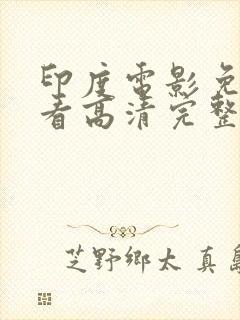 印度電影免
看高清完整
芝野鄉太 真島